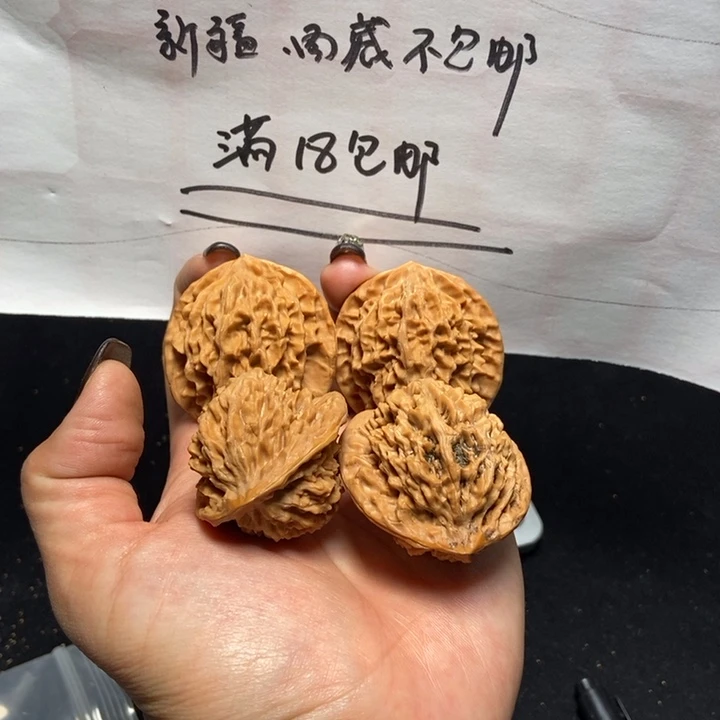 新疆 西藏不包邮
满18包邮